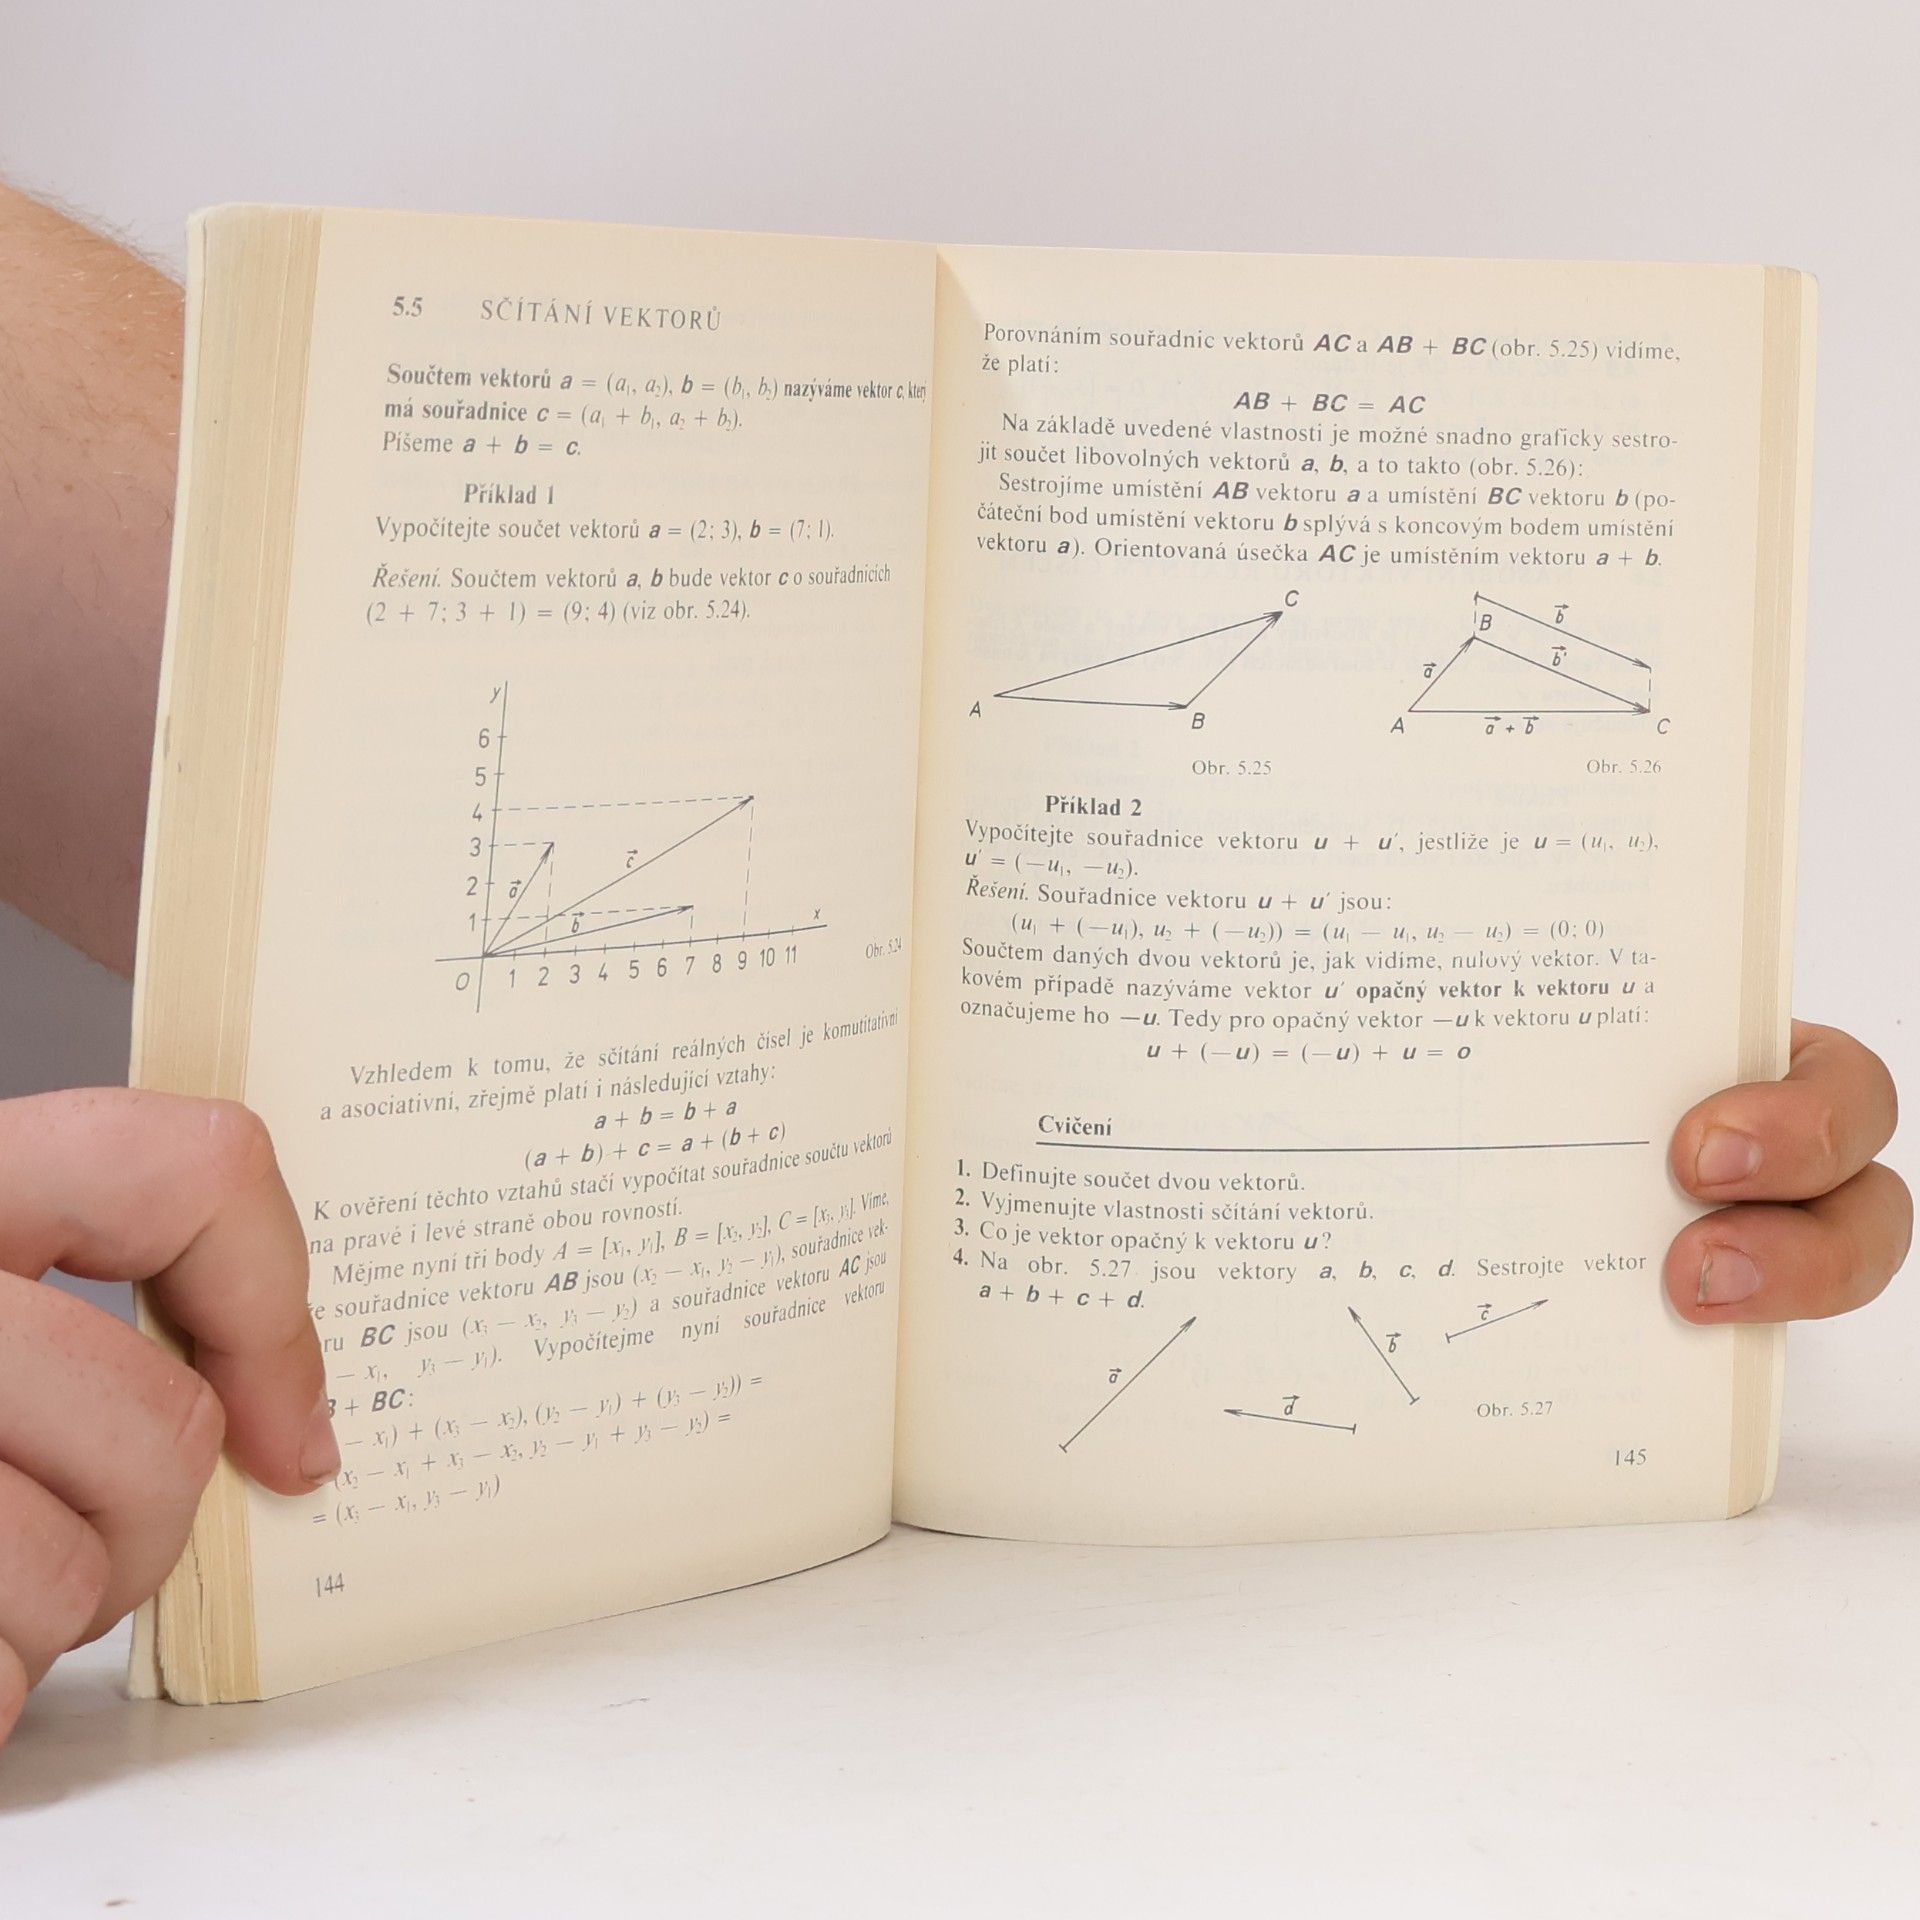 5.5 SČÍTÁNÍ VEKTORŮ
Součtem vektorů a = (a₁, a₂), b = (b₁, b₂) nazýváme vektor c, který
má souřadnice c = (a₁ + b₁, a₂ + b₂).
Píšeme a + b = c.
Příklad 1
Vypočítejte součet vektorů a = (2; 3), b = (7; 1).
Řešení. Součtem vektorů a, b bude vektor c o souřadnicích
(2 + 7; 3 + 1) = (9; 4) (viz obr. 5.24).
y
6
5
4
3
2
1
a⃗
b⃗
c⃗
x
O 1 2 3 4 5 6 7 8 9 10 11
Obr. 5.24
Vzhledem k tomu, že sčítání reálných čísel je komutitativní
a asociativní, zřejmě platí i následující vztahy:
a + b = b + a
(a + b) + c = a + (b + c)
K ověření těchto vztahů stačí vypočítat souřadnice součtu vektorů
na pravé i levé straně obou rovností.
Mějme nyní tři body A = [x₁, y₁], B = [x₂, y₂], C = [x₃, y₃]. Víme,
že souřadnice vektoru AB jsou (x₂ − x₁, y₂ − y₁), souřadnice vek-
ru BC jsou (x₃ − x₂, y₃ − y₂) a souřadnice vektoru AC jsou
− x₁, y₃ − y₁). Vypočítejme nyní souřadnice vektoru
B + BC:
− x₁) + (x₃ − x₂), (y₂ − y₁) + (y₃ − y₂)) =
(x₂ − x₁ + x₃ − x₂, y₂ − y₁ + y₃ − y₂) =
= (x₃ − x₁, y₃ − y₁)
144
Porovnáním souřadnic vektorů AC a AB + BC (obr. 5.25) vidíme,
že platí:
AB + BC = AC
Na základě uvedené vlastnosti je možné snadno graficky sestro-
jit součet libovolných vektorů a, b, a to takto (obr. 5.26):
Sestrojíme umístění AB vektoru a a umístění BC vektoru b (po-
čáteční bod umístění vektoru b splývá s koncovým bodem umístění
vektoru a). Orientovaná úsečka AC je umístěním vektoru a + b.
A
B
C
Obr. 5.25
A
B
C
a⃗
b⃗
b⃗'
a⃗ + b⃗
Obr. 5.26
Příklad 2
Vypočítejte souřadnice vektoru u + u′, jestliže je u = (u₁, u₂),
u′ = (−u₁, −u₂).
Řešení. Souřadnice vektoru u + u′ jsou:
(u₁ + (−u₁), u₂ + (−u₂)) = (u₁ − u₁, u₂ − u₂) = (0; 0)
Součtem daných dvou vektorů je, jak vidíme, nulový vektor. V ta-
kovém případě nazýváme vektor u′ opačný vektor k vektoru u a
označujeme ho −u. Tedy pro opačný vektor −u k vektoru u platí:
u + (−u) = (−u) + u = o
Cvičení
1. Definujte součet dvou vektorů.
2. Vyjmenujte vlastnosti sčítání vektorů.
3. Co je vektor opačný k vektoru u?
4. Na obr. 5.27 jsou vektory a, b, c, d. Sestrojte vektor
a + b + c + d.
a⃗
b⃗
c⃗
d⃗
Obr. 5.27
145